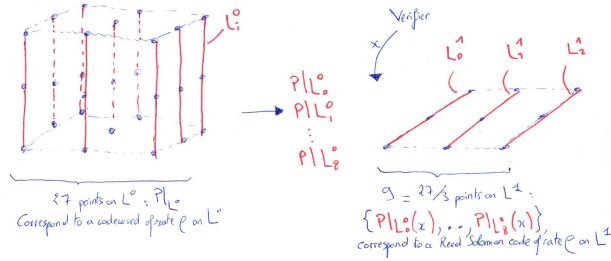 L_i^0
P|L_0^0
P|L_1^0
⋮
P|L_8^0
27 points on L^0 : P|L^0
Correspond to a codeword of rate ρ on L^0
Verifier
x
L_0^1 L_1^1 L_2^1
9 = 27/3 points on L^1 :
{P|L_0^0(x), . . , P|L_8^0(x)}
correspond to a Reed Solomon code of rate ρ on L^1